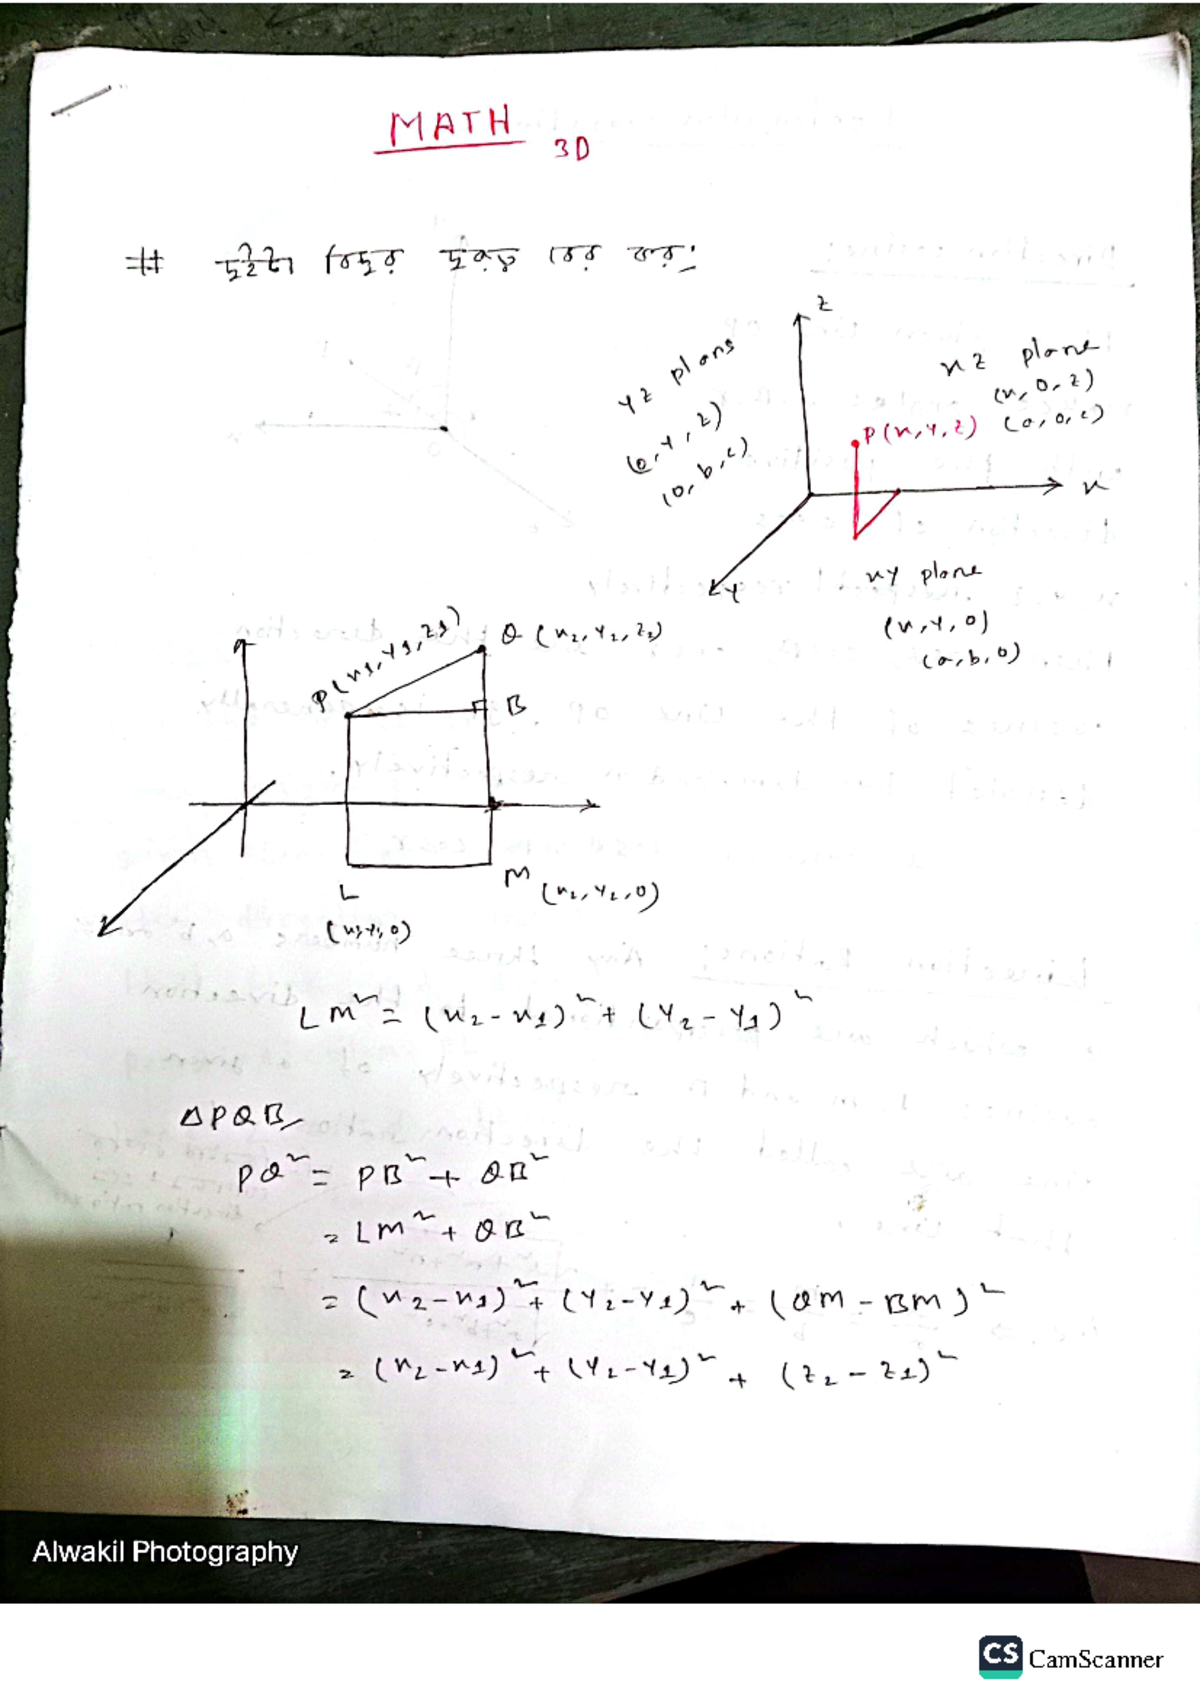 MATH
3D
# দুইটা বিন্দুর দুরত্ব বের কর:
Z
YZ plans
(0, Y, Z)
(0, b, c)
xz plane
(x, 0, z)
(a, 0, c)
P(x, Y, z)
x
Y
xy plane
(x, Y, 0)
(a, b, 0)
P(x1, Y1, Z1)
Q (x2, Y2, Z2)
B
L
(x1, Y1, 0)
M
(x2, Y2, 0)
LM² = (x2 - x1)² + (Y2 - Y1)²
ΔPQB,
PQ² = PB² + QB²
= LM² + QB²
= (x2 - x1)² + (Y2 - Y1)² + (QM - BM)²
= (x2 - x1)² + (Y2 - Y1)² + (z2 - z1)²
Alwakil Photography
CS CamScanner